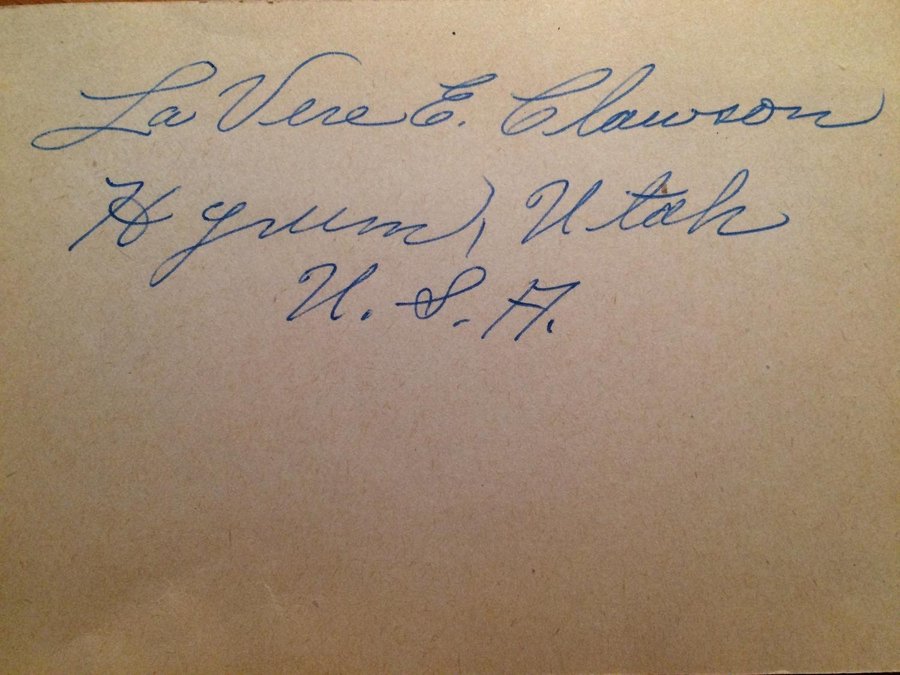 La Vere E. Clawson
Hyrum, Utah
U. S. A.